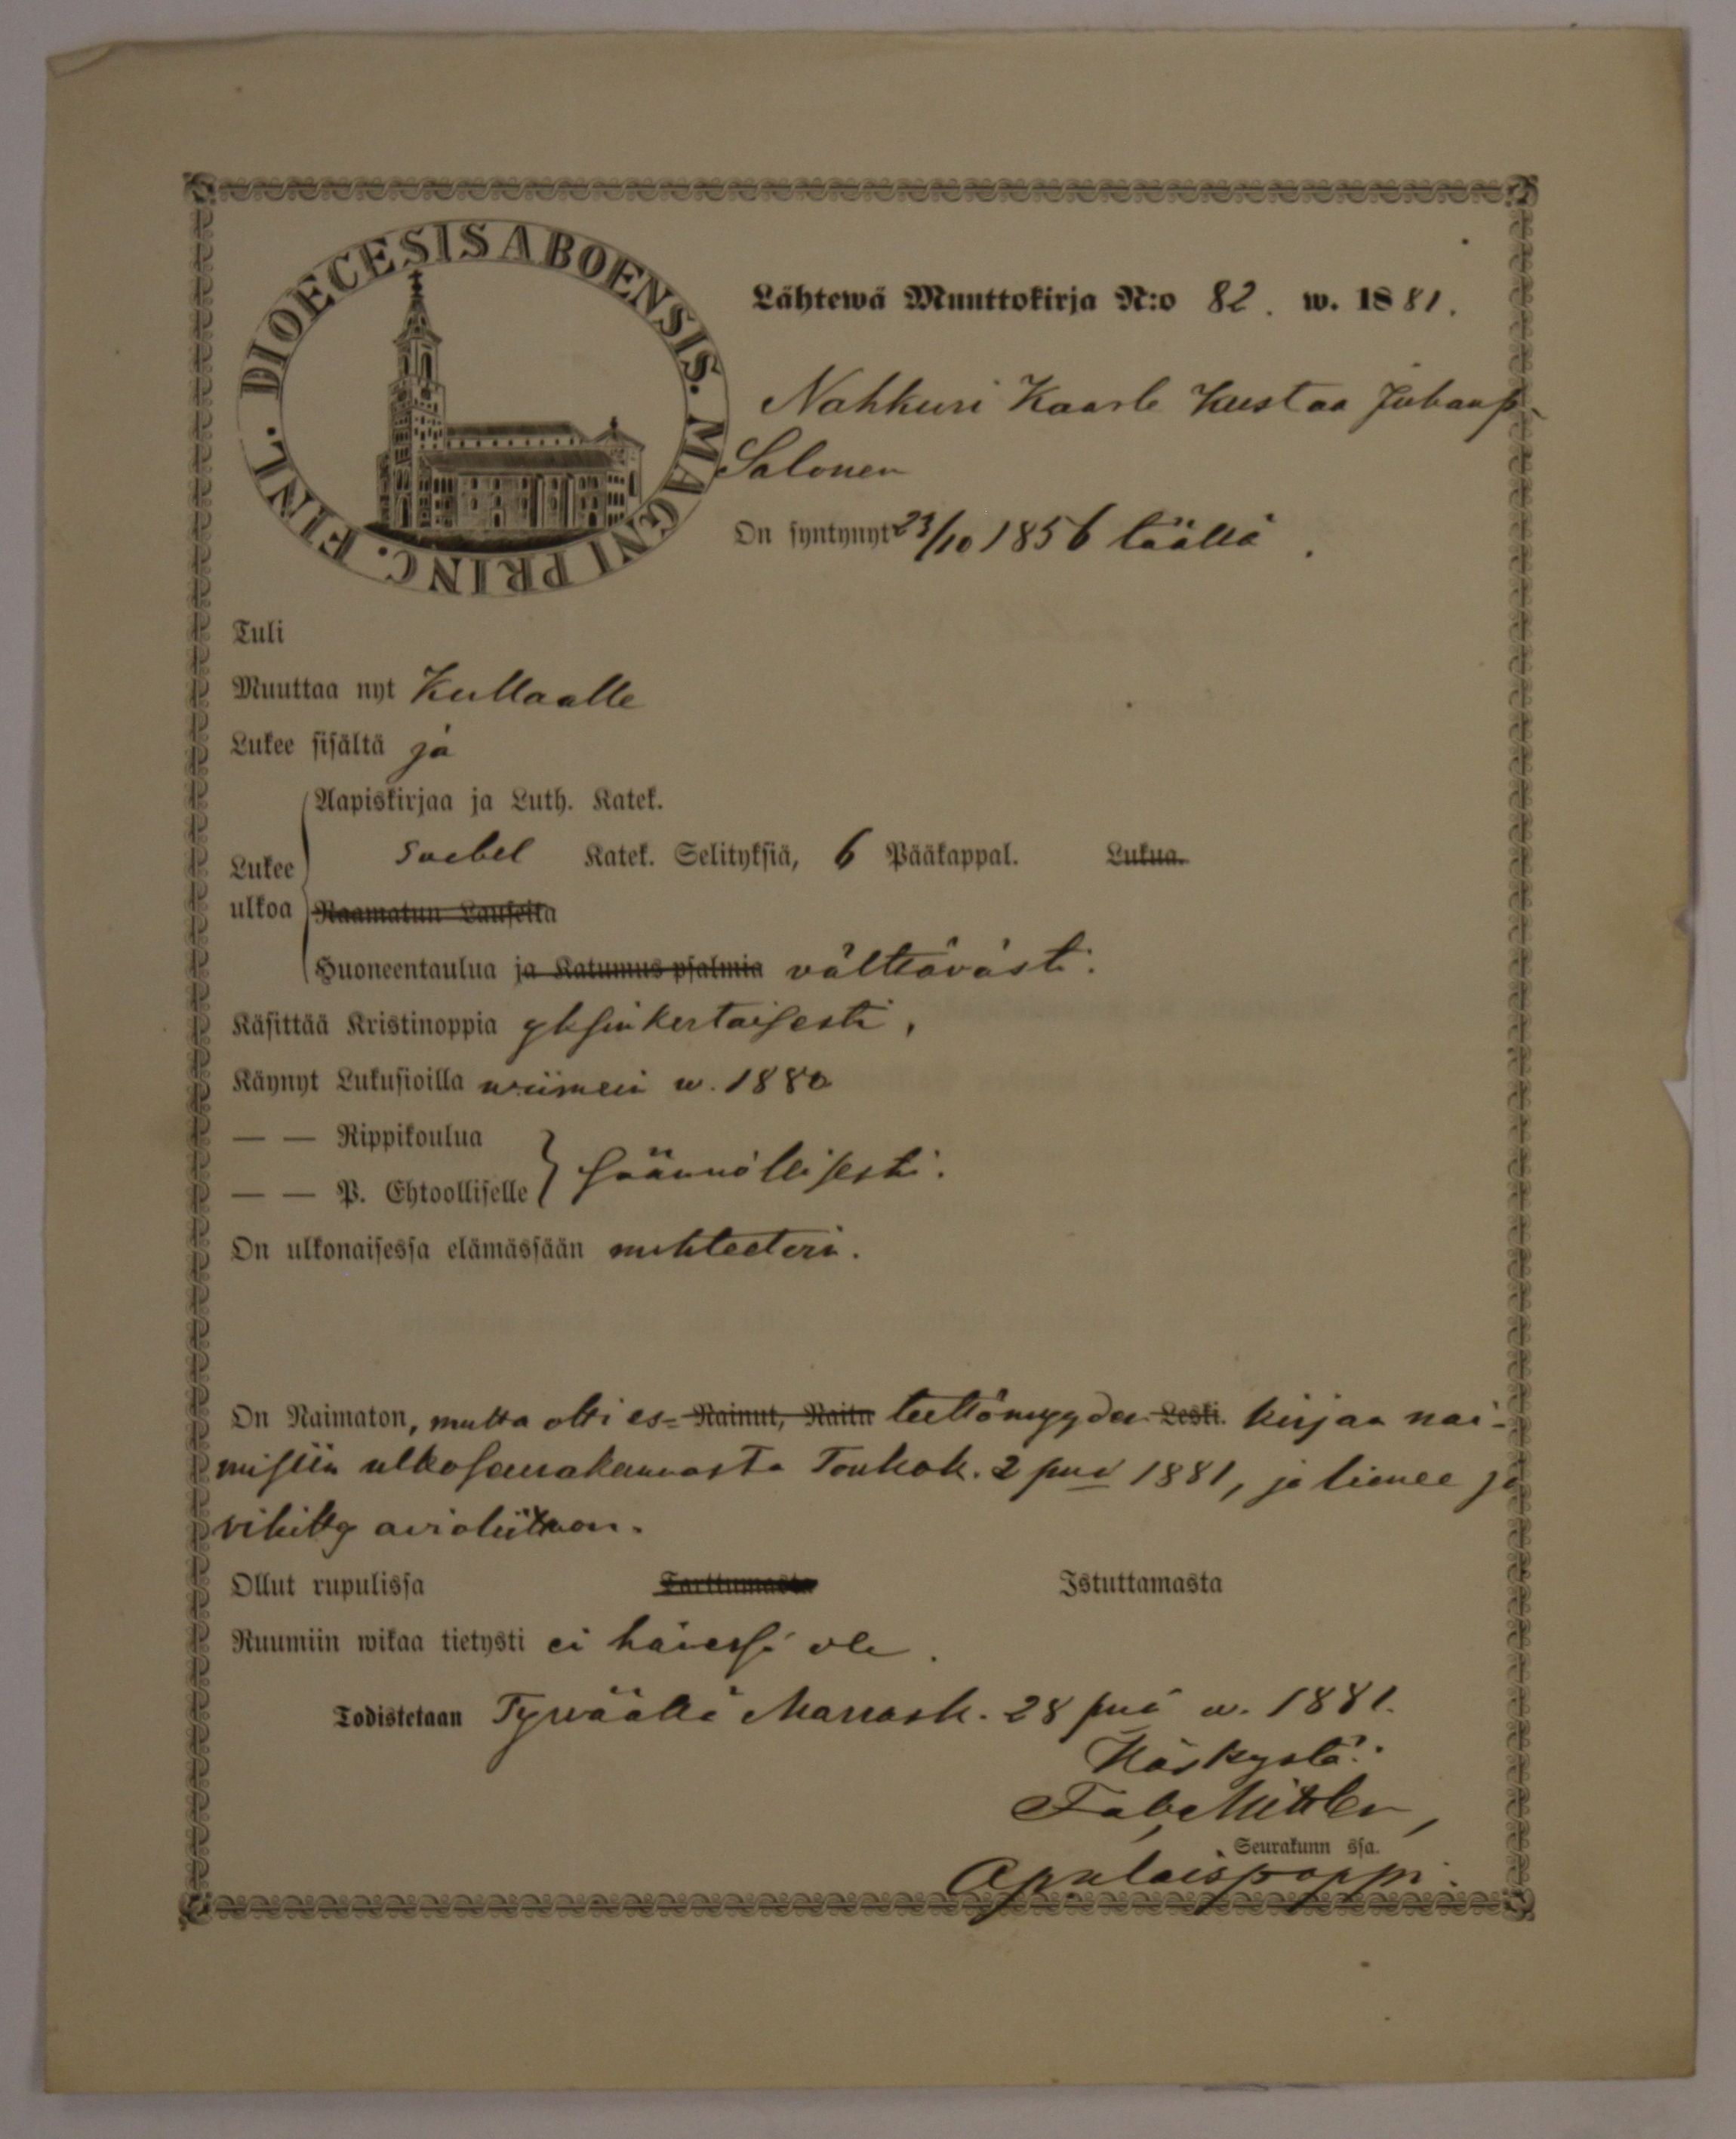 DIOECESIS ABOENSIS. MAGNI PRINC. FINL.
Lähtewä Muuttokirja N:o 82. w. 1881.
Nahkuri Kaarle Kustaa Juhanp.
Salonen
On syntynyt 23/10 1856 täällä.
Tuli
Muuttaa nyt Kullaalle
Lukee sisältä ja
Aapiskirjaa ja Luth. Katek.
Lukee ulkoa Svebel Katek. Selityksiä, 6 Pääkappal. Lukua.
Raamatun Lauseita
Huoneentaulua ja Katumus psalmia välttävästi.
Käsittää Kristinoppia yksinkertaisesti,
Käynyt Lukusioilla wiimein w. 1880
— — Rippikoulua
— — P. Ehtoolliselle } säännöllisesti.
On ulkonaisessa elämässään nuhteeton.
On Naimaton, mutta otti es- Nainut, Naitu teettömyyden Leski. kirjan nai-
misiin ulkoseurakunnasta Toukok. 2 pnä 1881, ja lienee jo
vihitty avioliittoon.
Ollut rupulissa Tarttumasta Istuttamasta
Ruumiin wikaa tietysti ei hänessä ole.
Todistetaan Tyrväällä Marrask. 28 pnä w. 1881.
Käskystä:
Seurakunn ssa.
Apulaispappi.